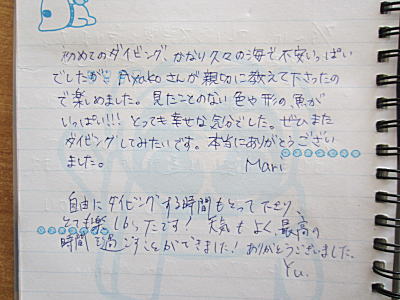 初めてのダイビング、かなり久々の海で不安いっぱい
でしたが、Ayakoさんが親切に教えて下さったの
で楽しめました。見たことのない色や形の魚が
いっぱい!!! とっても幸せな気分でした。ぜひまた
ダイビングしてみたいです。本当にありがとうござい
ました。 Mari
自由にダイビングする時間もとって下さり
とても楽しかったです! 天気もよく、最高の
時間を過ごすことができました! ありがとうございました。
Yu.